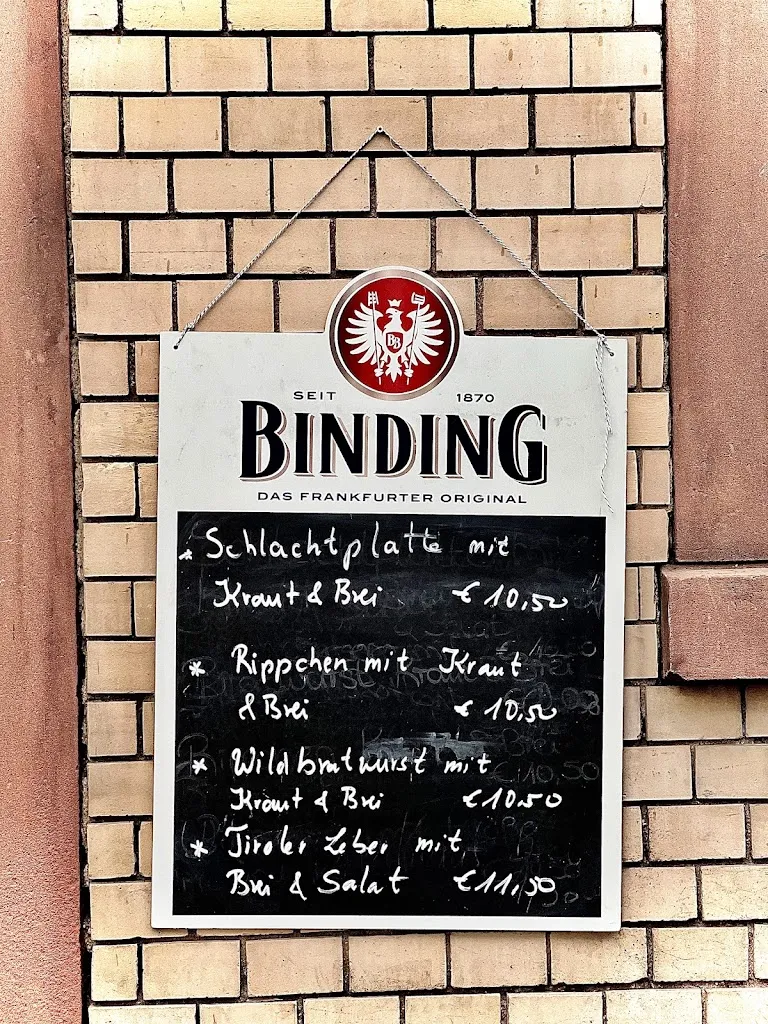 BB
SEIT 1870
BINDING
DAS FRANKFURTER ORIGINAL
* Schlachtplatte mit
Kraut & Brei € 10,50
* Rippchen mit Kraut
& Brei € 10,50
* Wildbratwurst mit
Kraut & Brei € 10.50
* Tiroler Leber mit
Brei & Salat € 11,50